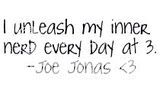 I unleash my inner
nerd every day at 3.
-Joe Jonas <3